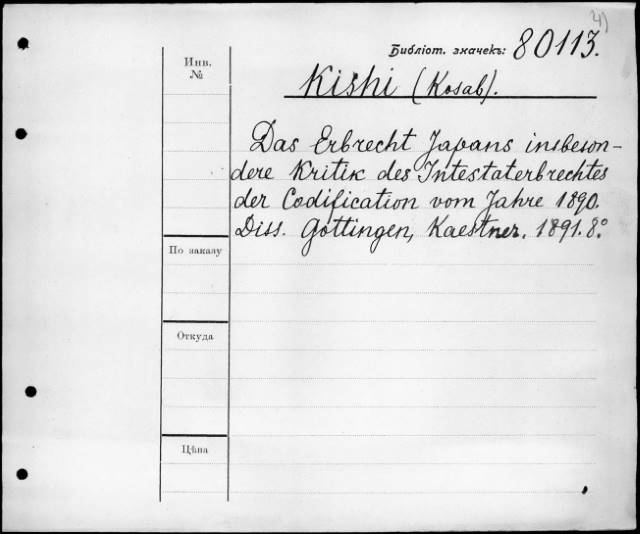 41)
Библіот. значекъ: 80113.
Инв.
№
Kishi (Kosab).
Das Erbrecht Japans insbeson-
dere Kritik des Intestaterbrechtes
der Codification vom Jahre 1890.
Diss. Göttingen, Kaestner. 1891. 8.°
По заказу
Откуда
Цѣна